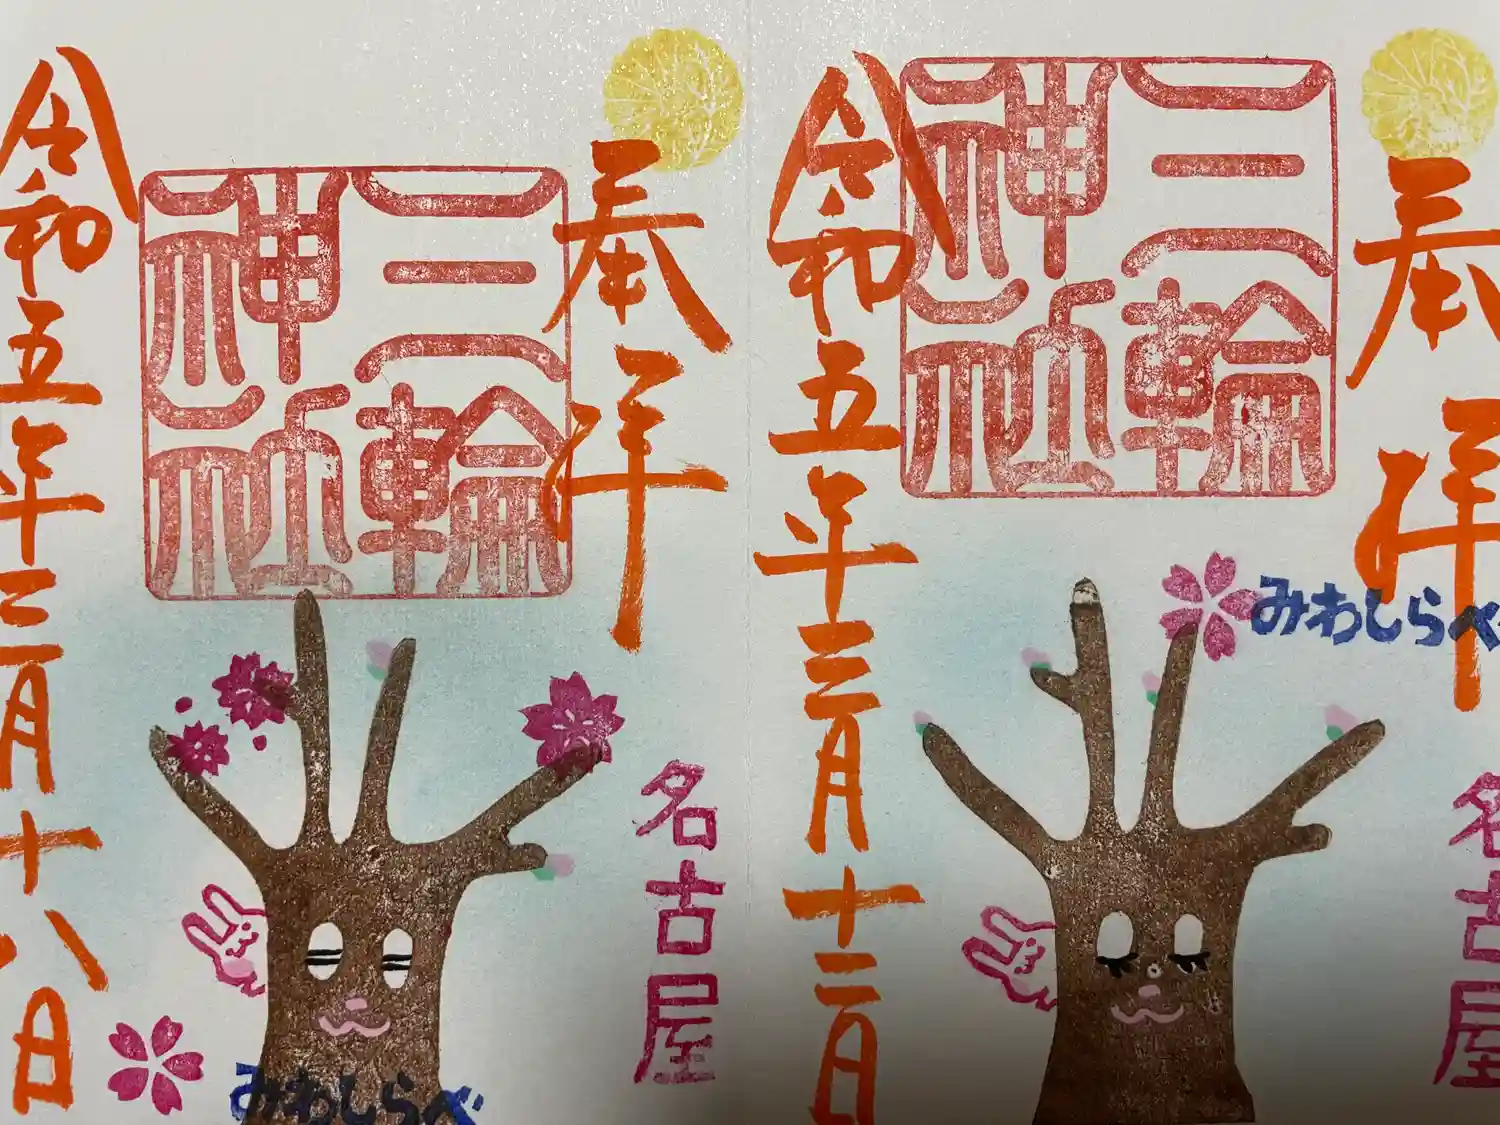 奉拝
三輪
神社
名古屋
みわしらべ
令和五年三月十二日
奉拝
三輪
神社
名古屋
みわしらべ
令和五年三月十八日